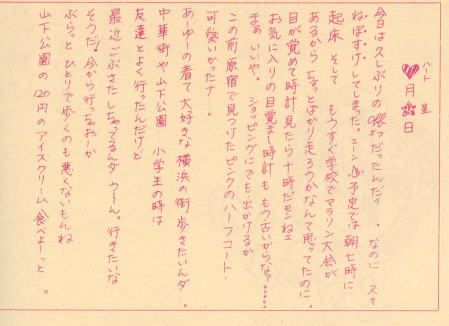 ハート 星
♡月☆日
今日は久しぶりのOFFだったんだィ。なのに又々
ねぼすけしてしまった。エーン 予定では朝七時に
起床 そして もうすぐ学校でマラソン大会が
あるから ちょっとばかり走ろうかなんて思ってたのに。
目が覚めて時計見たら十時だモンねェ
お気に入りの目覚まし時計ももう古いからな?……
まぁいいや。 ショッピングにでも出かけるか
この前原宿で見つけたピンクのハーフコート.
可愛いかったナ。
あーゆーの着て大好きな横浜の街歩きたいんダ.
中華街や山下公園 小学生の時は
友達とよく行ったんだけど
最近ごぶさたしちゃってるんダ う〜ん。行きたいな
そうだ!今から行っちゃおーか
ぶらっと ひとりで歩くのも悪くないもんね
山下公園の120円のアイスクリーム食べよーっと 。